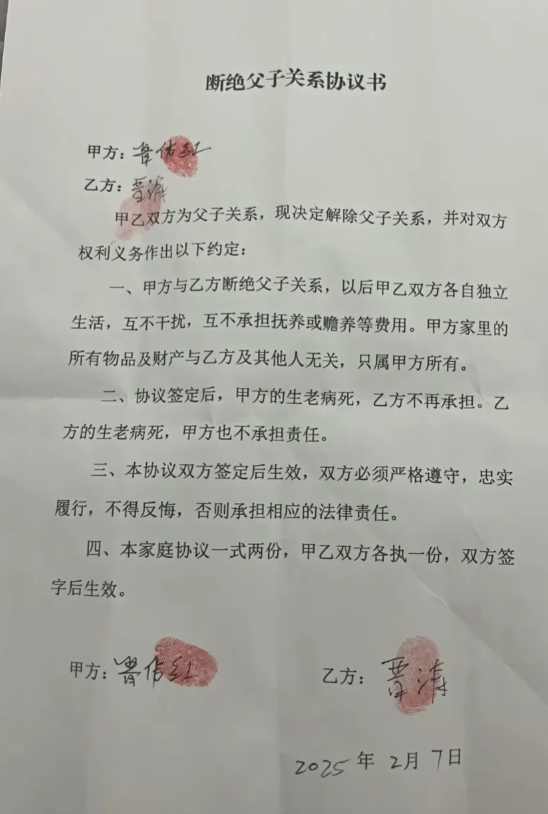 断绝父子关系协议书
甲方：
乙方：晋涛
甲乙双方为父子关系，现决定解除父子关系，并对双方
权利义务作出以下约定：
一、甲方与乙方断绝父子关系，以后甲乙双方各自独立
生活，互不干扰，互不承担抚养或赡养等费用。甲方家里的
所有物品及财产与乙方及其他人无关，只属甲方所有。
二、协议签定后，甲方的生老病死，乙方不再承担。乙
方的生老病死，甲方也不承担责任。
三、本协议双方签定后生效，双方必须严格遵守，忠实
履行，不得反悔，否则承担相应的法律责任。
四、本家庭协议一式两份，甲乙双方各执一份，双方签
字后生效。
甲方：
乙方：晋涛
2025年2月7日